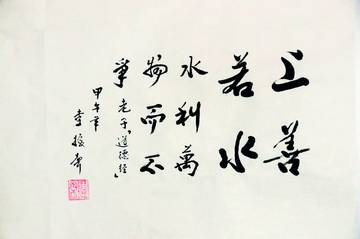 上善
若水
水利萬
物而不
爭 老子「道德經」
甲午年
李